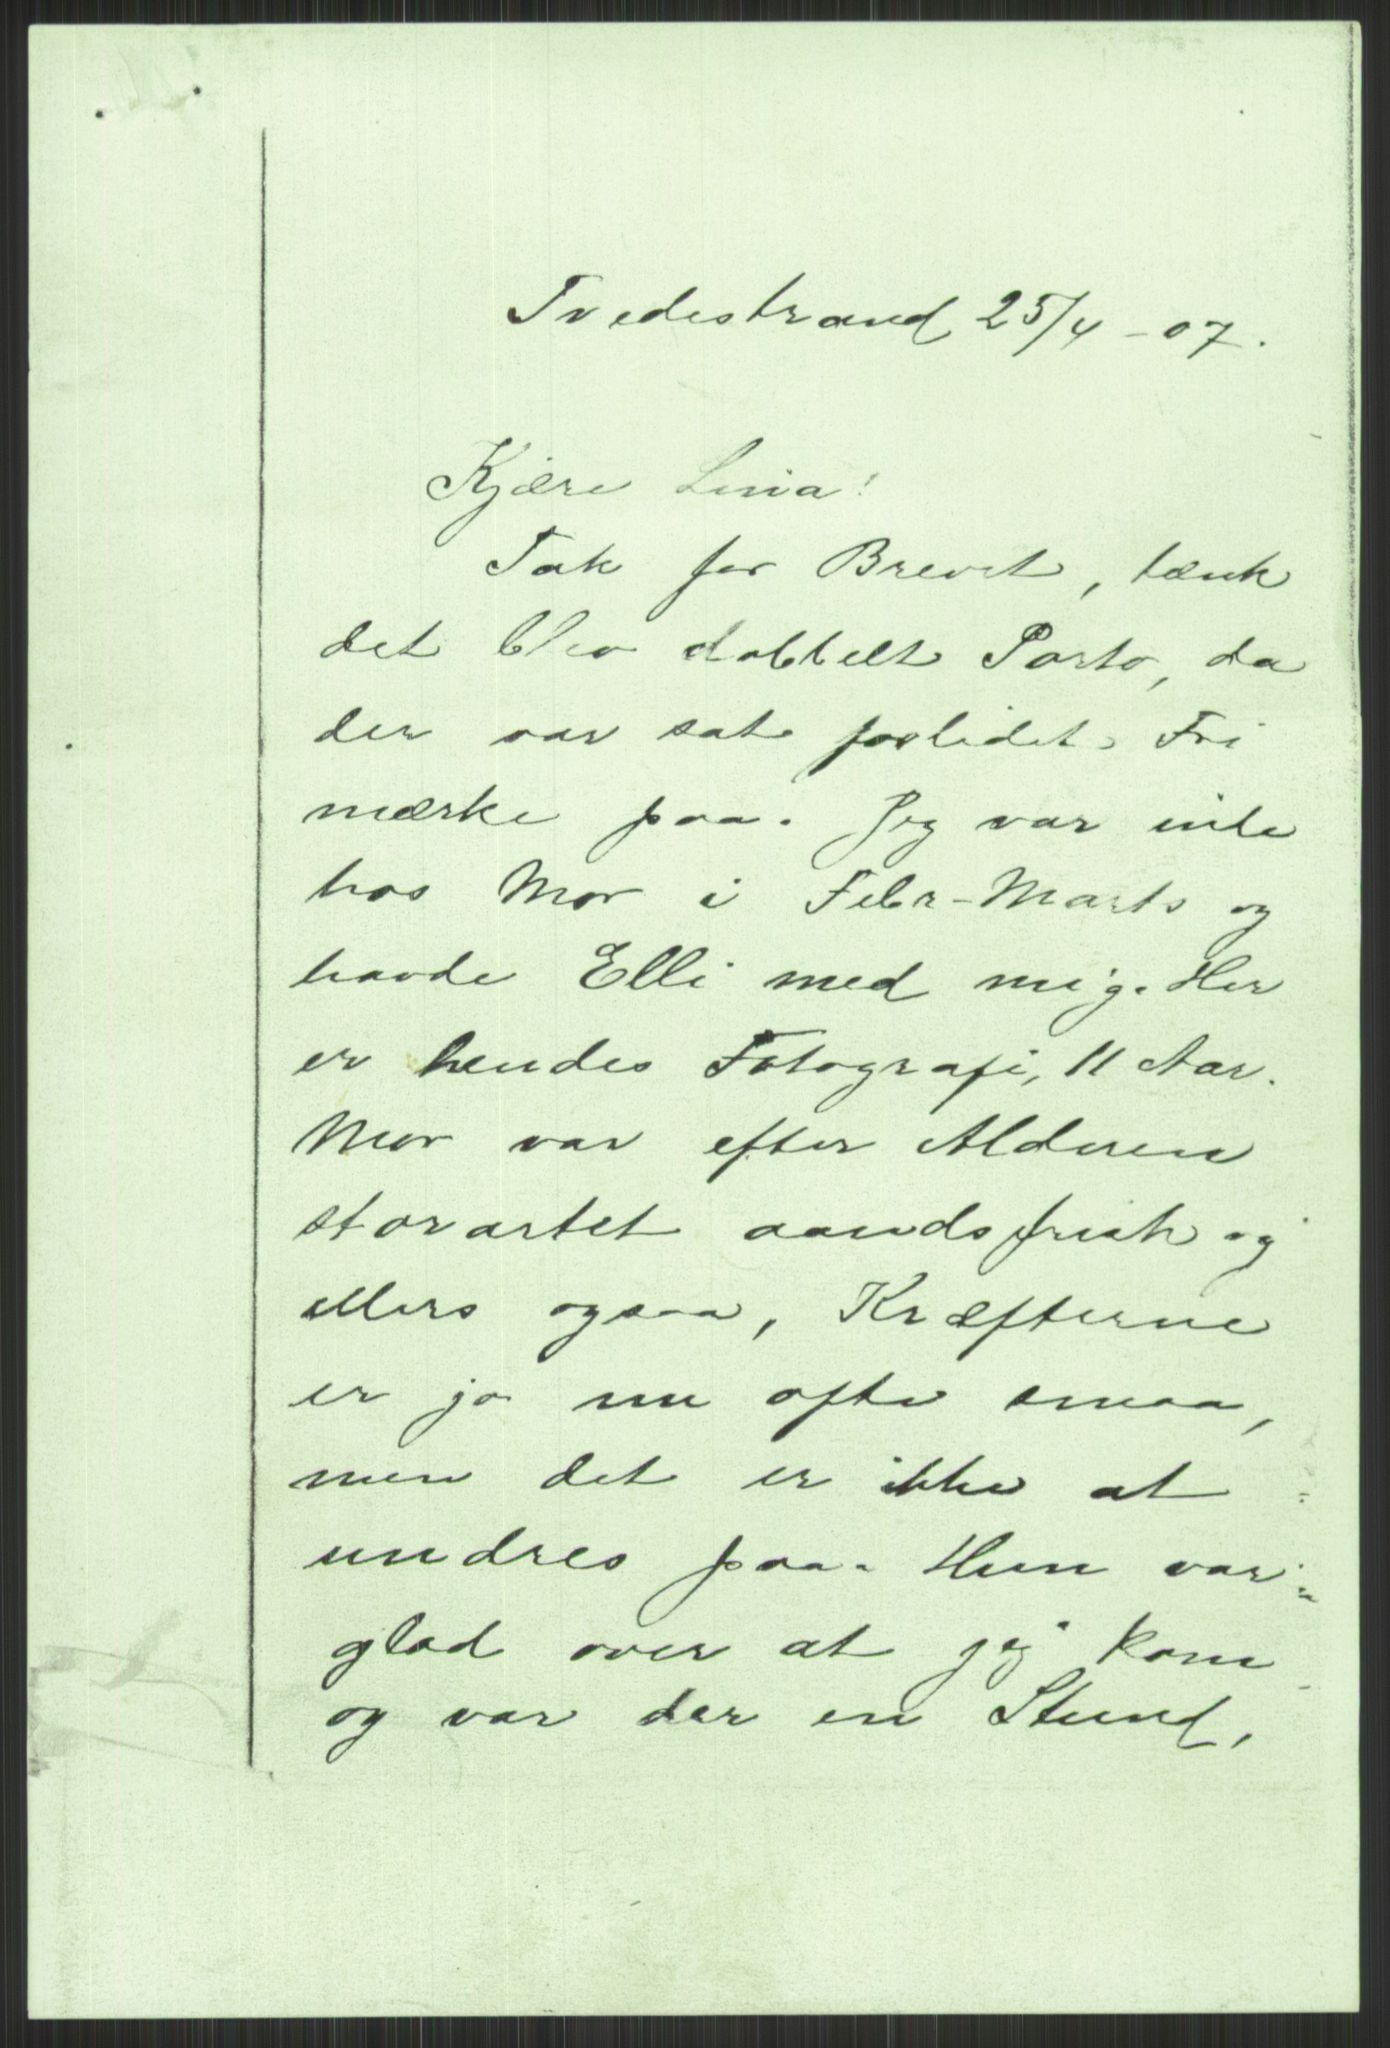 Tvedestrand 25/4 - 07.
Kjære Lina!
Tak for Brevet, tænk
det blev dobbelt Porto, da
der var sat forlidet Fri
mærke paa. Jeg var inde
hos Mor i Febr-Marts og
havde Elli med mig. Her
er hendes Fotografi, 11 Aar.
Mor var efter Alderen
storartet aandsfrisk og
ellers ogsaa, Kræfterne
er jo nu ofte smaa,
men det er ikke at
undres paa. Hun var
glad over at jeg kom
og var der en Stund,